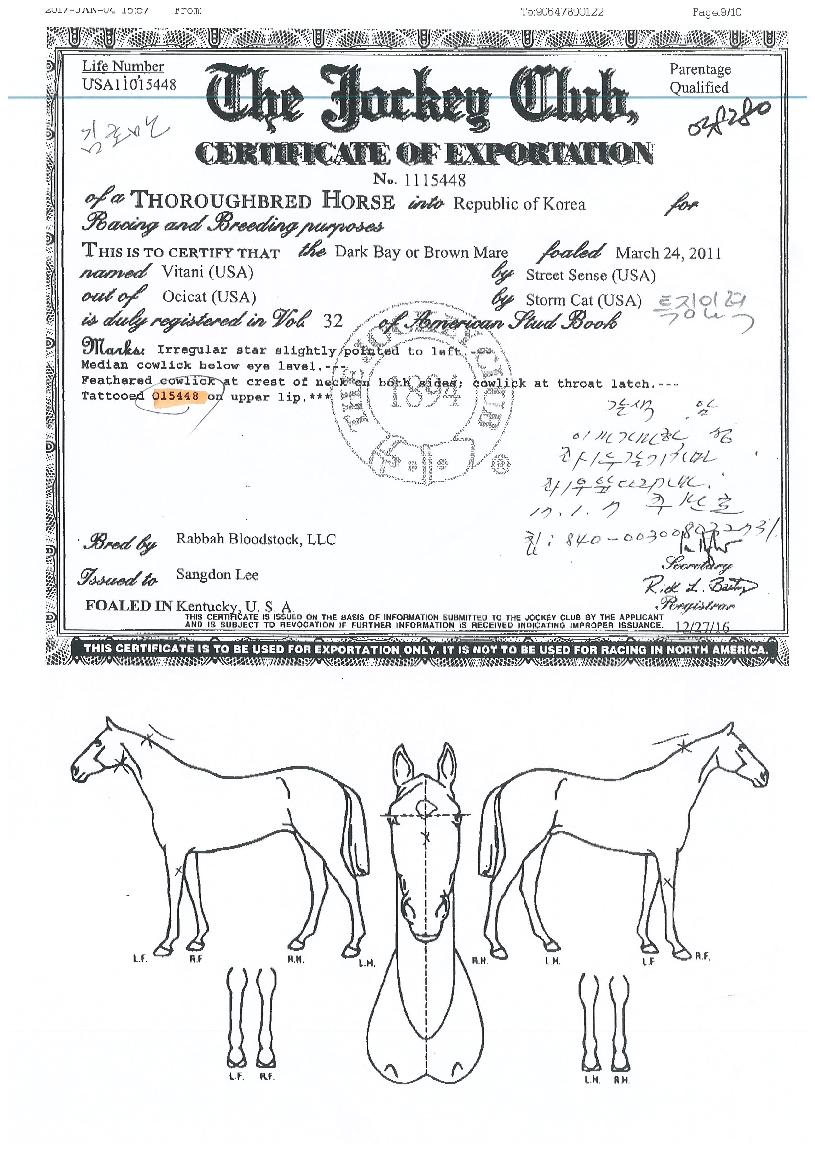 2017-JAN-04 15:57 From To:90647800122 Page.9/10
Life Number
USA11015448
The Jockey Club,
Parentage
Qualified
038280
CERTIFICATE OF EXPORTATION
No. 1115448
of a THOROUGHBRED HORSE into Republic of Korea for
Racing and Breeding purposes
THIS IS TO CERTIFY THAT the Dark Bay or Brown Mare foaled March 24, 2011
named Vitani (USA) by Street Sense (USA)
out of Ocicat (USA) by Storm Cat (USA)
is duly registered in Vol. 32 of American Stud Book
Marks: Irregular star slightly pointed to left.---
Median cowlick below eye level.---
Feathered cowlick at crest of neck on both sides; cowlick at throat latch.---
Tattooed O15448 on upper lip.***
THE JOCKEY CLUB
1894
17.1.7
칩: 840-003008032731
Bred by Rabbah Bloodstock, LLC
Secretary
Issued to Sangdon Lee
Registrar
FOALED IN Kentucky, U. S A
THIS CERTIFICATE IS ISSUED ON THE BASIS OF INFORMATION SUBMITTED TO THE JOCKEY CLUB BY THE APPLICANT
AND IS SUBJECT TO REVOCATION IF FURTHER INFORMATION IS RECEIVED INDICATING IMPROPER ISSUANCE.
12/27/16
THIS CERTIFICATE IS TO BE USED FOR EXPORTATION ONLY. IT IS NOT TO BE USED FOR RACING IN NORTH AMERICA.
L.F. R.F R.H. L.H. R.H. L.H. L.F R.F.
L.F. R.F. L.H. R.H.